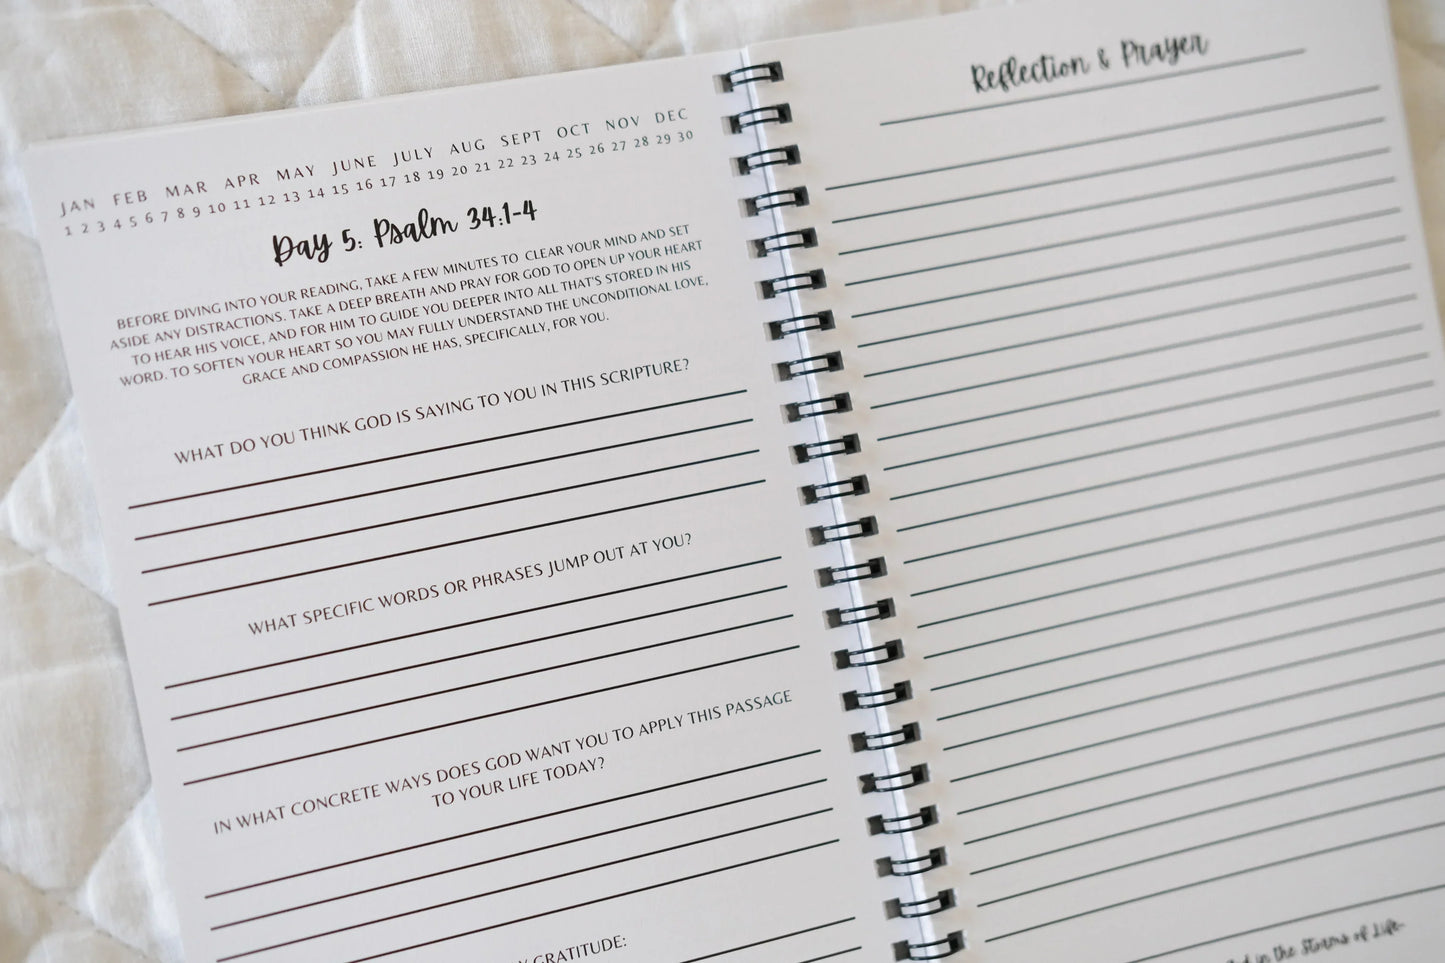 JAN FEB MAR APR MAY JUNE JULY AUG SEPT OCT NOV DEC
1 2 3 4 5 6 7 8 9 10 11 12 13 14 15 16 17 18 19 20 21 22 23 24 25 26 27 28 29 30
Day 5: Psalm 34:1-4
BEFORE DIVING INTO YOUR READING, TAKE A FEW MINUTES TO CLEAR YOUR MIND AND SET
ASIDE ANY DISTRACTIONS. TAKE A DEEP BREATH AND PRAY FOR GOD TO OPEN UP YOUR HEART
TO HEAR HIS VOICE, AND FOR HIM TO GUIDE YOU DEEPER INTO ALL THAT'S STORED IN HIS
WORD. TO SOFTEN YOUR HEART SO YOU MAY FULLY UNDERSTAND THE UNCONDITIONAL LOVE,
GRACE AND COMPASSION HE HAS, SPECIFICALLY, FOR YOU.
WHAT DO YOU THINK GOD IS SAYING TO YOU IN THIS SCRIPTURE?
WHAT SPECIFIC WORDS OR PHRASES JUMP OUT AT YOU?
IN WHAT CONCRETE WAYS DOES GOD WANT YOU TO APPLY THIS PASSAGE
TO YOUR LIFE TODAY?
GRATITUDE:
Reflection & Prayer
in the Storms of Life